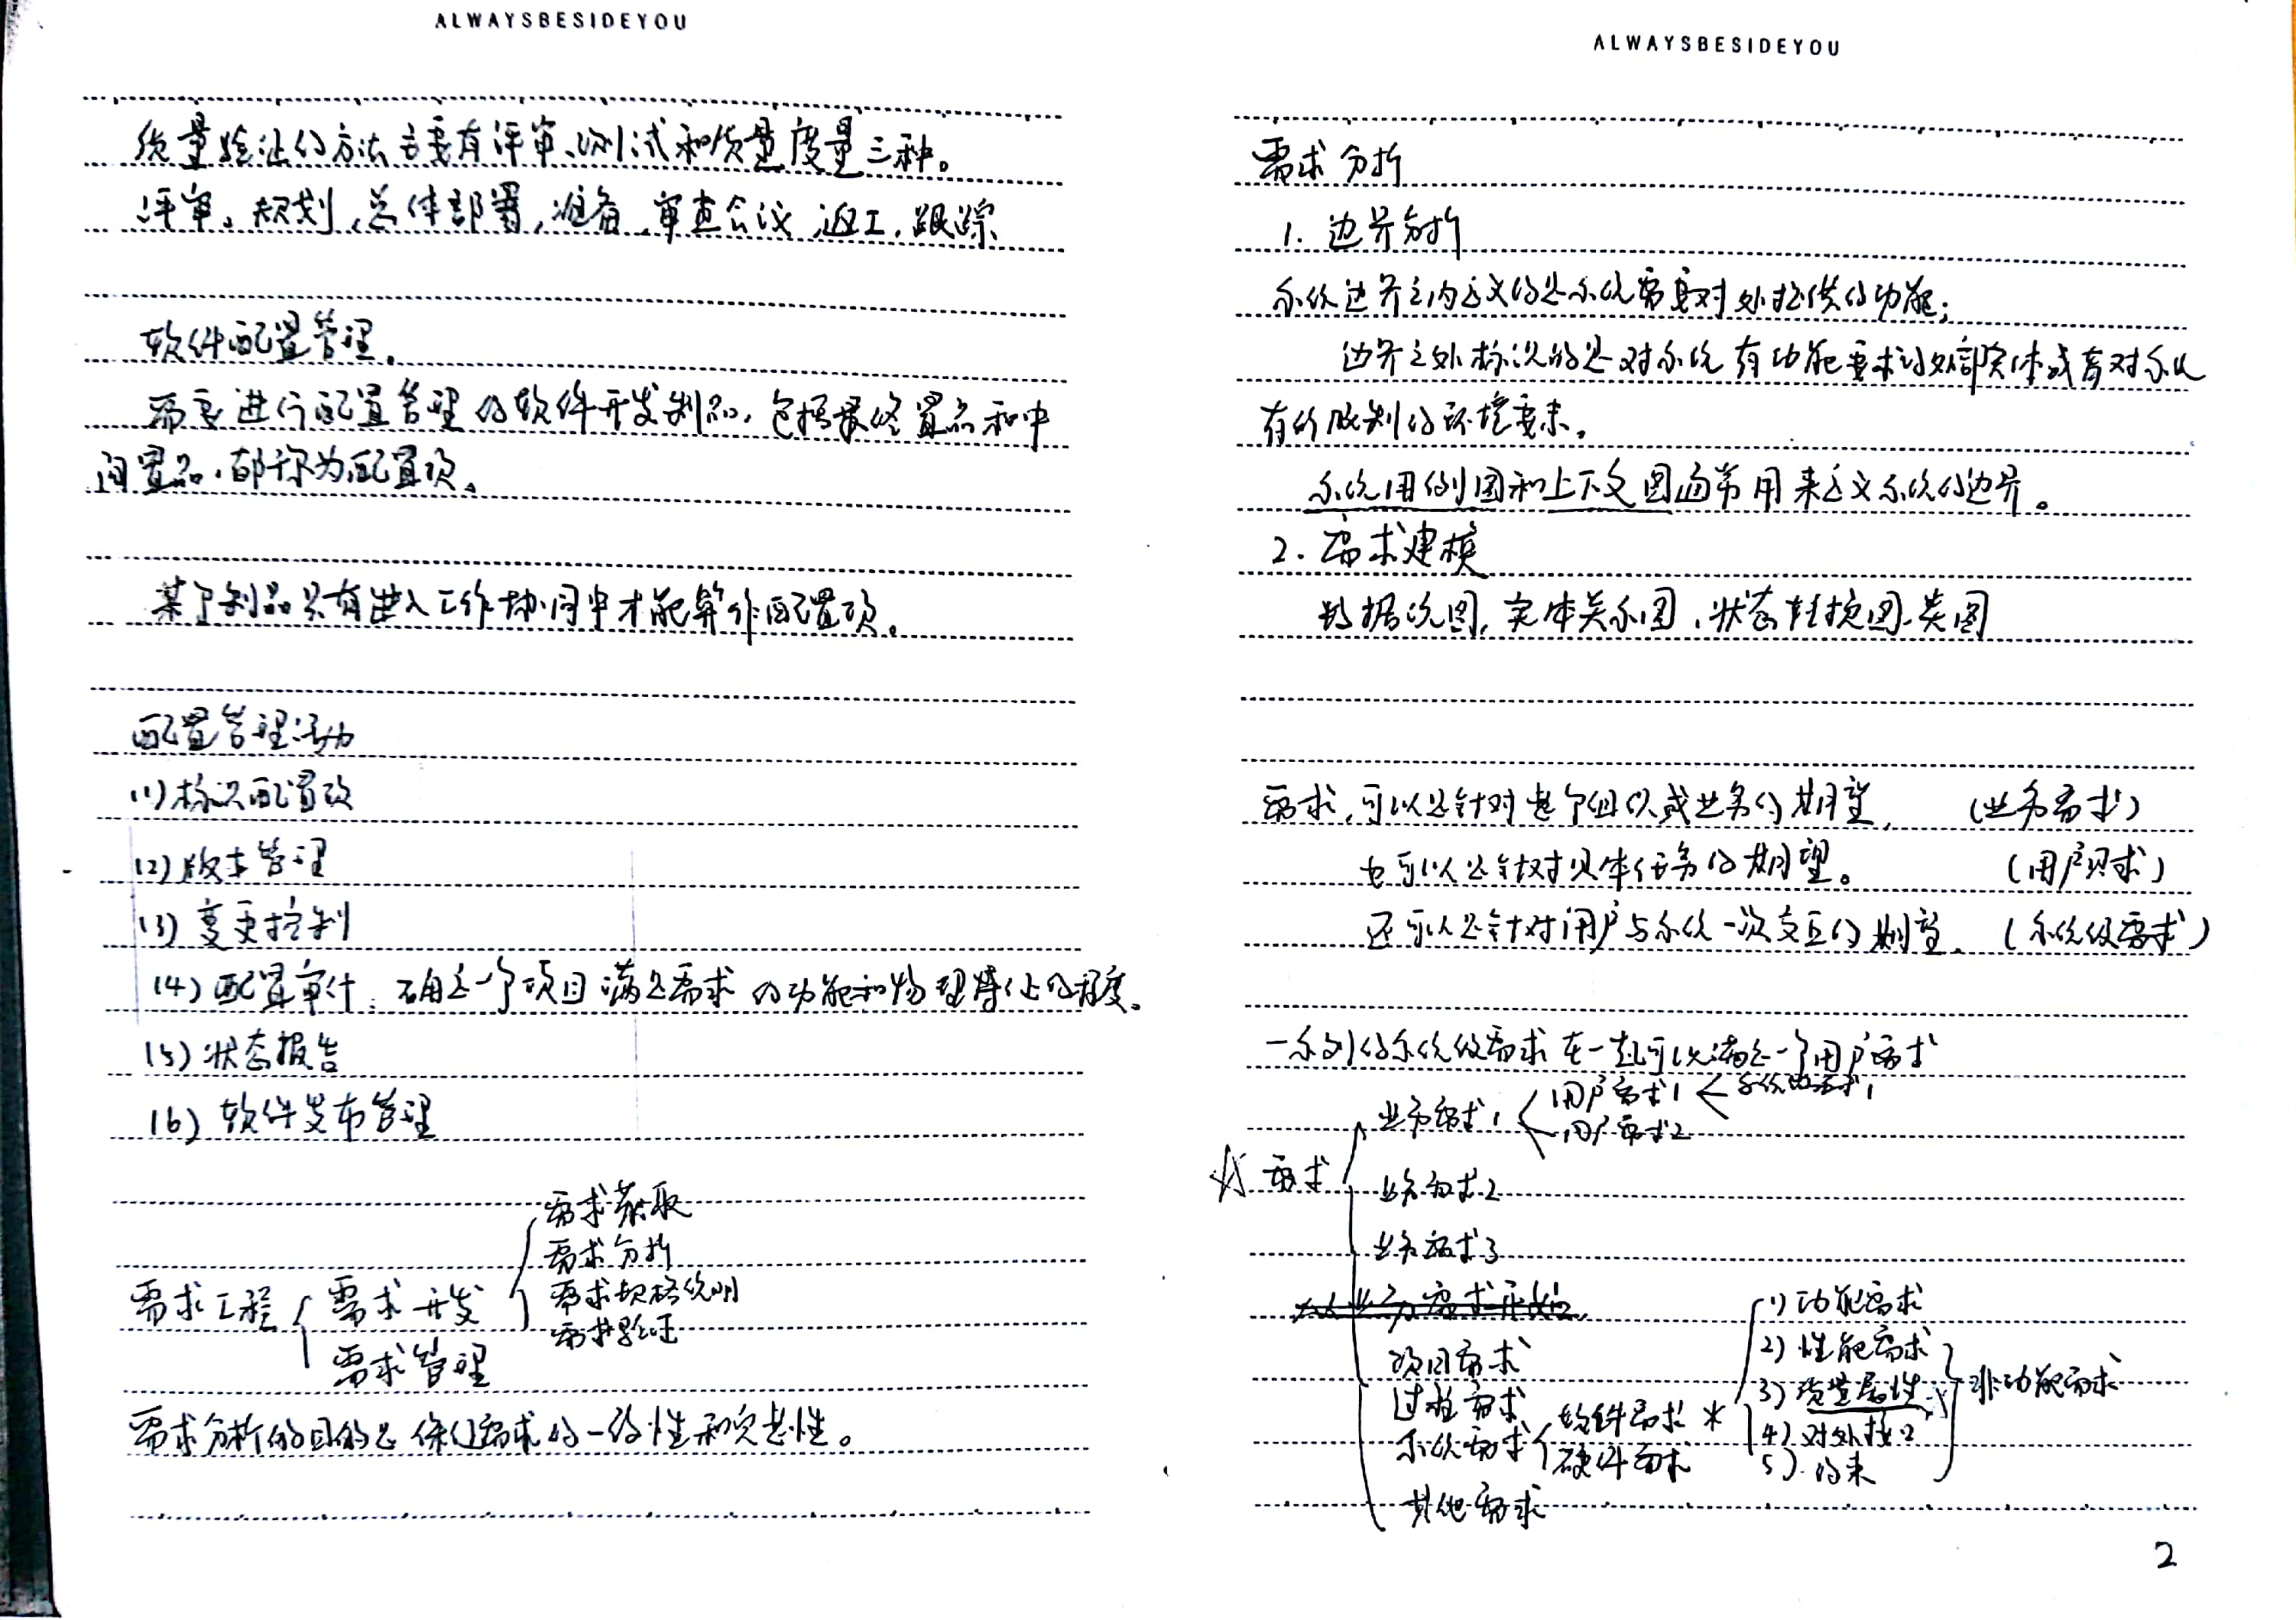 ALWAYSBESIDEYOU
质量验证的方法主要有评审、测试和质量度量三种。
评审。规划,总体部署,准备,审查会议,返工,跟踪
软件配置管理。
需要进行配置管理的软件开发制品,包括最终置品和中
间置品,都称为配置项。
某个制品只有进入工作协同中才能算作配置项。
配置管理活动
(1)标识配置项
(2)版本管理
(3)变更控制
(4)配置审计:确定一个项目满足需求的功能和物理特征的程度。
(5)状态报告
(6)软件发布管理
需求获取
需求分析
需求规格说明
需求验证
需求工程
需求开发
需求管理
需求分析的目的是保证需求的一致性和完整性。
ALWAYSBESIDEYOU
需求分析
1. 边界分析
系统边界之内定义的是系统需要对外提供的功能;
边界之外标识的是对系统有功能要求的外部实体或者对系统
有所限制的环境要求。
系统用例图和上下文图通常用来定义系统的边界。
2. 需求建模
数据流图,实体关系图,状态转换图、类图
需求,可以是针对整个组织或业务的期望, (业务需求)
也可以是针对具体任务的期望。 (用户需求)
还可以是针对用户与系统一次交互的期望。 (系统级需求)
一系列的系统级需求在一起可以满足一个用户需求
☆ 需求
业务需求1 < 用户需求1 < 系统级需求1
用户需求2
业务需求2
业务需求3
项目需求
过程需求
系统需求
软件需求 *
硬件需求
其他需求
1) 功能需求
2) 性能需求
3) 质量属性
4) 对外接口
5) 约束
非功能需求
2